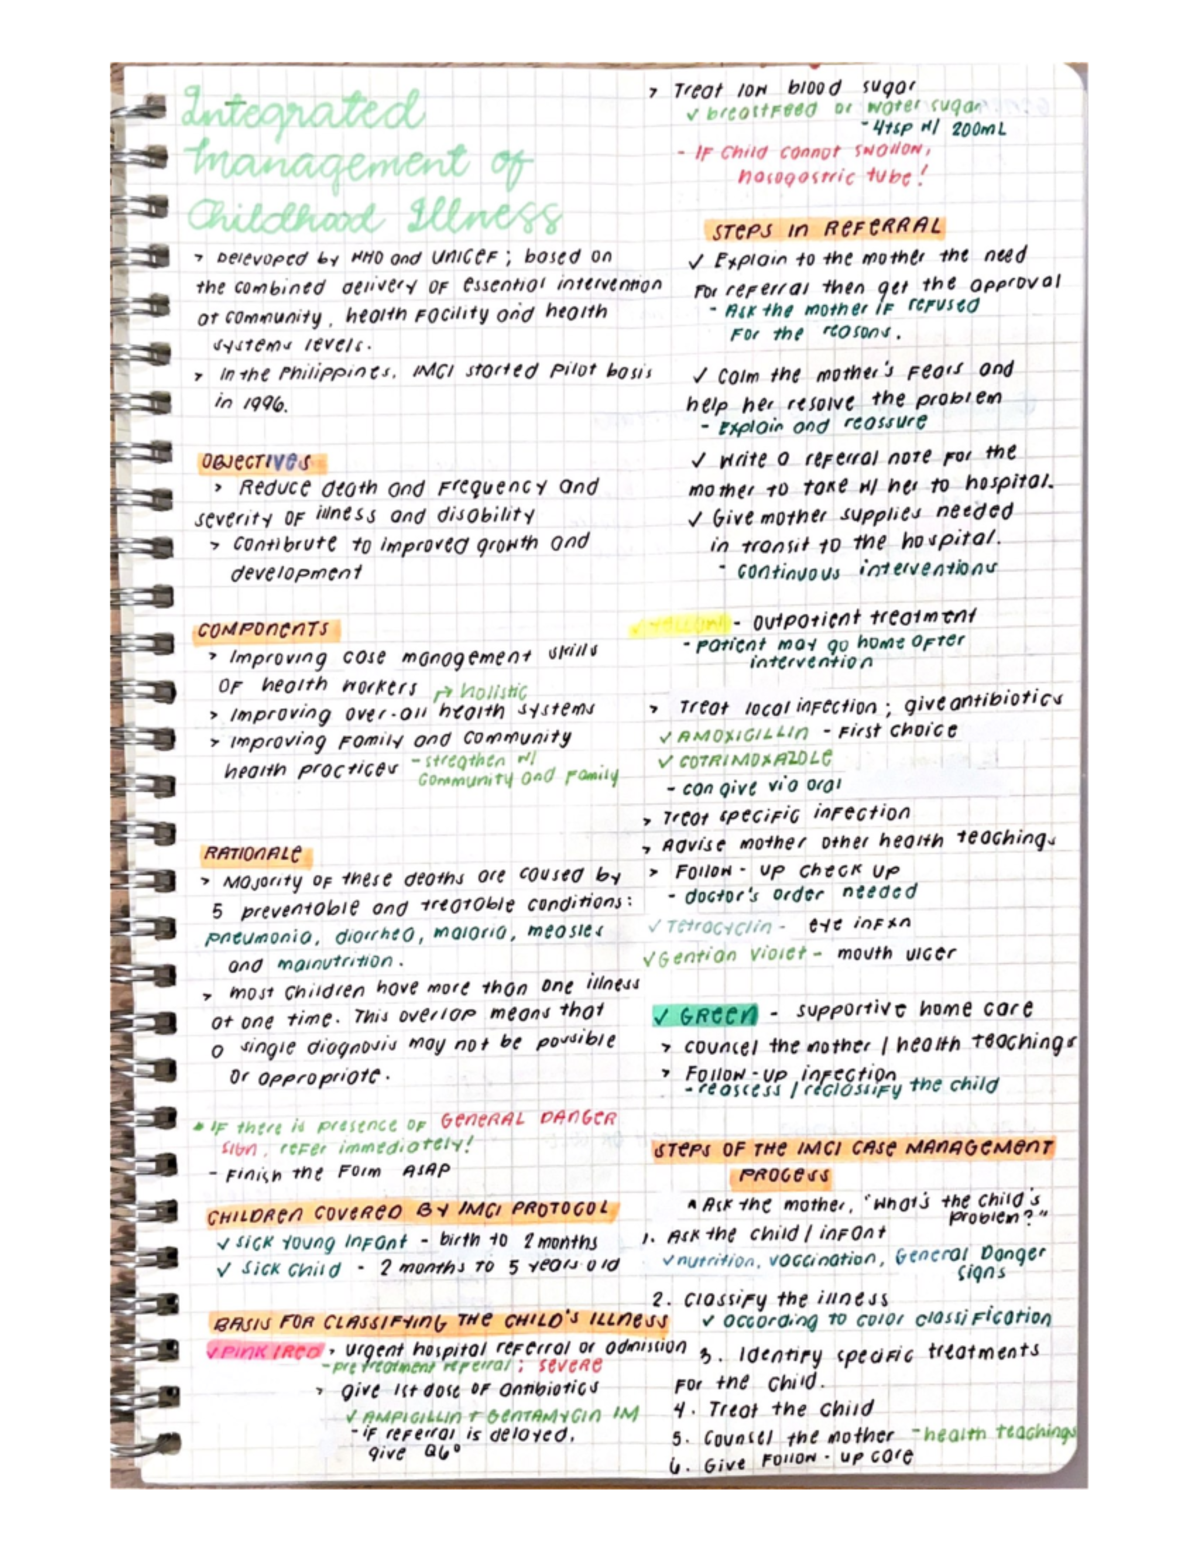 Integrated
Management of
Childhood Illness
> Delevoped by WHO and UNICEF ; based on
the combined delivery of essential intervention
at community, health facility and health
systems levels.
> In the Philippines, IMCI started pilot basis
in 1996.
OBJECTIVES
> Reduce death and frequency and
severity of illness and disability
> Contibrute to improved growth and
development
COMPONENTS
> Improving case management skills
of health workers
↱ holistic
> Improving over-all health systems
> Improving Family and Community
health practices - stregthen w/
community and family
RATIONALE
> Majority of these deaths are caused by
5 preventable and treatable conditions:
pneumonia, diarrhea, malaria, measles
and malnutrition.
> Most children have more than one illness
at one time. This overlap means that
a single diagnosis may not be possible
or appropriate.
* If there is presence of GENERAL DANGER
SIGN, refer immediately!
- Finish the Form ASAP
CHILDREN COVERED BY IMCI PROTOCOL
✓ Sick Young Infant - birth to 2 months
✓ Sick Child - 2 months to 5 years old
BASIS FOR CLASSIFYING THE CHILD'S ILLNESS
✓ PINK/RED > urgent hospital referral or admission
- pretreatment referral ; severe
> give 1st dose of antibiotics
✓ AMPICILLIN + GENTAMYCIN IM
- if referral is delayed,
give Q6°
> Treat low blood sugar
✓ breastfeed or water sugar
- 4tsp w/ 200mL
- If child cannot swallow,
nasogastric tube!
STEPS IN REFERRAL
✓ Explain to the mother the need
for referral then get the approval
- Ask the mother if refused
for the reasons.
✓ Calm the mother's fears and
help her resolve the problem
- Explain and reassure
✓ Write a referral note for the
mother to take w/ her to hospital.
✓ Give mother supplies needed
in transit to the hospital.
- continuous interventions
- outpatient treatment
- patient may go home after
intervention
> Treat local infection ; give antibiotics
✓ AMOXICILLIN - First choice
✓ COTRIMOXAZOLE
- can give via oral
> Treat specific infection
> Advise mother other health teachings
> Follow - up check up
- doctor's order needed
✓ Tetracyclin - eye infxn
✓ Gentian Violet - mouth ulcer
✓ GREEN - supportive home care
> councel the mother / health teachings
> Follow - up infection
- reascess / reclassify the child
STEPS OF THE IMCI CASE MANAGEMENT
PROCESS
* Ask the mother, "What's the child's
problem?"
1. Ask the child / infant
✓ nutrition, vaccination, General Danger
Signs
2. Classify the illness
✓ according to color classification
3. Identify specific treatments
for the child.
4. Treat the child
5. Counsel the mother - health teachings
6. Give Follow - up care